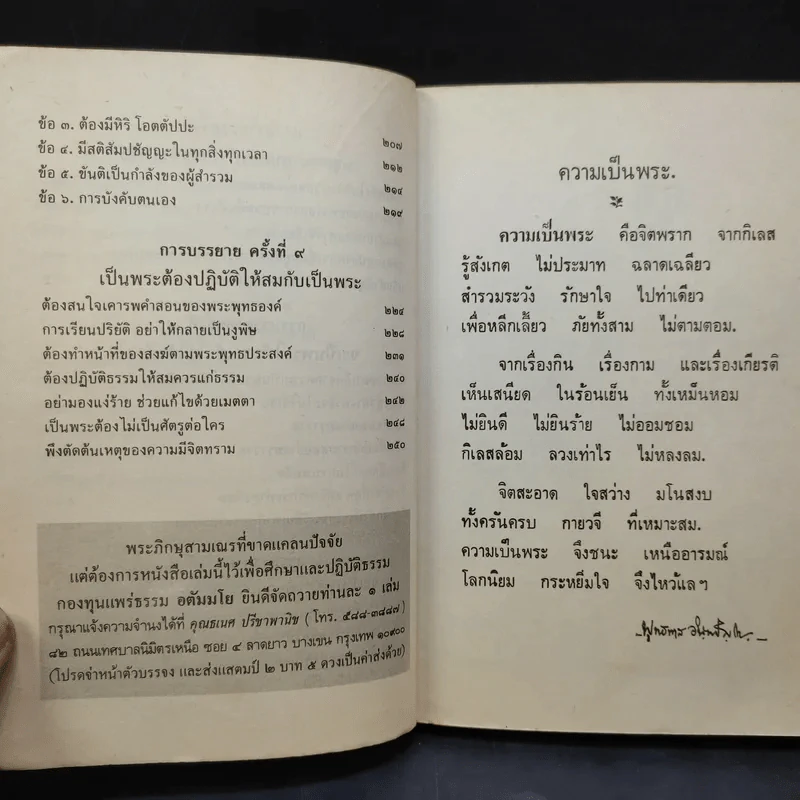 ข้อ ๓. ต้องมีหิริ โอตตัปปะ ๒๐๗
ข้อ ๔. มีสติสัมปชัญญะในทุกสิ่งทุกเวลา ๒๑๒
ข้อ ๕. ขันติเป็นกำลังของผู้สำรวม ๒๑๔
ข้อ ๖. การบังคับตนเอง ๒๑๙
การบรรยาย ครั้งที่ ๙
เป็นพระต้องปฏิบัติให้สมกับเป็นพระ
ต้องสนใจเคารพคำสอนของพระพุทธองค์ ๒๒๔
การเรียนปริยัติ อย่าให้กลายเป็นงูพิษ ๒๒๘
ต้องทำหน้าที่ของสงฆ์ตามพระพุทธประสงค์ ๒๓๑
ต้องปฏิบัติธรรมให้สมควรแก่ธรรม ๒๔๐
อย่ามองแง่ร้าย ช่วยแก้ไขด้วยเมตตา ๒๔๒
เป็นพระต้องไม่เป็นศัตรูต่อใคร ๒๔๘
พึงตัดต้นเหตุของความมีจิตทราม ๒๕๐
พระภิกษุสามเณรที่ขาดแคลนปัจจัย
แต่ต้องการหนังสือเล่มนี้ไว้เพื่อศึกษาและปฏิบัติธรรม
กองทุนแพร่ธรรม อตัมมโย ยินดีจัดถวายท่านละ ๑ เล่ม
กรุณาแจ้งความจำนงได้ที่ คุณธเนศ ปรีชาพานิช ( โทร. ๕๘๘-๓๘๘๗ )
๘๒ ถนนเทศบาลนิมิตรเหนือ ซอย ๔ ลาดยาว บางเขน กรุงเทพ ๑๐๙๐๐
(โปรดจ่าหน้าตัวบรรจง และส่งแสตมป์ ๒ บาท ๕ ดวงเป็นค่าส่งด้วย)
ความเป็นพระ.
ความเป็นพระ คือจิตพราก จากกิเลส
รู้สังเกต ไม่ประมาท ฉลาดเฉลียว
สำรวมระวัง รักษาใจ ไปท่าเดียว
เพื่อหลีกเลี้ยว ภัยทั้งสาม ไม่ตามตอม.
จากเรื่องกิน เรื่องกาม และเรื่องเกียรติ
เห็นเสนียด ในร้อนเย็น ทั้งเหม็นหอม
ไม่ยินดี ไม่ยินร้าย ไม่ออมชอม
กิเลสล้อม ลวงเท่าไร ไม่หลงลม.
จิตสะอาด ใจสว่าง มโนสงบ
ทั้งครันครบ กายวจี ที่เหมาะสม.
ความเป็นพระ จึงชนะ เหนืออารมณ์
โลกนิยม กระหยิ่มใจ จึงไหว้แล ฯ